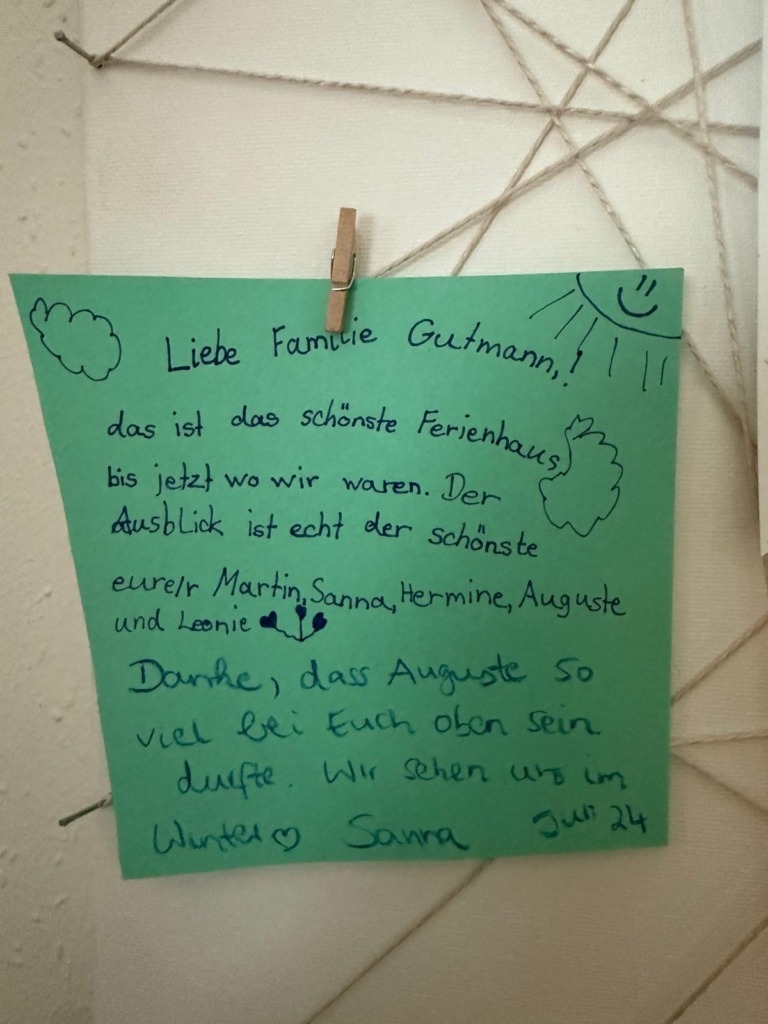 Liebe Familie Gutmann,!
das ist das schönste Ferienhaus,
bis jetzt wo wir waren. Der
Ausblick ist echt der schönste
eure/r Martin, Sanna, Hermine, Auguste
und Leonie
Danke, dass Auguste so
viel bei Euch oben sein
durfte. Wir sehen uns im
Winter♡ Sanna Juli 24